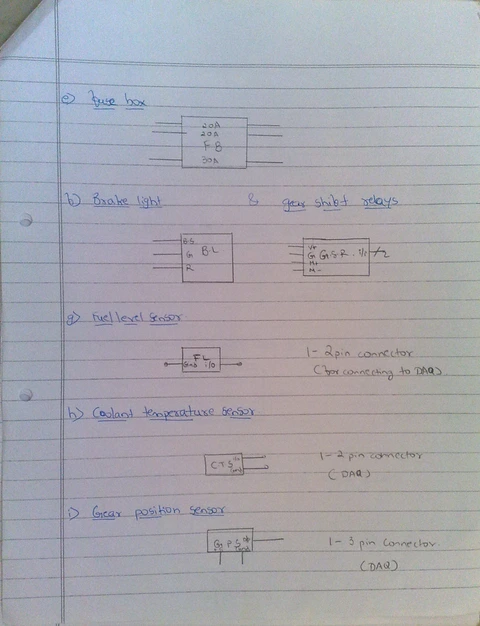 e) Fuse box
20A
20A
FB
30A
f) Brake light & gear shift relays
B.S
G BL
R
G G.S.R. 1/2
M+
M-
g) Fuel level sensor
FL
Gnd i/o
1 - 2 pin connector
(for connecting to DAQ)
h) Coolant temperature sensor
CTS
1 - 2 pin connector
(DAQ)
i) Gear position sensor
G P S
1 - 3 pin connector.
(DAQ)